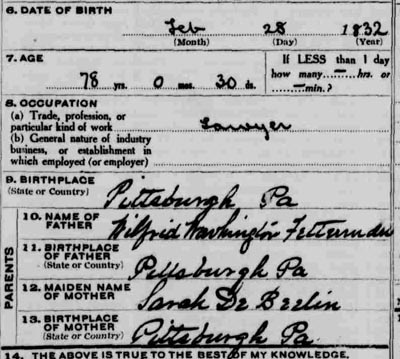 6. DATE OF BIRTH
Feb 28 1832
(Month) (Day) (Year)
7. AGE
If LESS than 1 day
78 yrs. 0 mos. 30 ds.
how many — hrs. or
— min.?
8. OCCUPATION
(a) Trade, profession, or
particular kind of work Lawyer
(b) General nature of industry
business, or establishment in
which employed (or employer)
9. BIRTHPLACE
(State or Country) Pittsburgh Pa
PARENTS
10. NAME OF
FATHER Wilfrid Washington Fetterman
11. BIRTHPLACE
OF FATHER
(State or Country) Pittsburgh Pa
12. MAIDEN NAME
OF MOTHER Sarah De Beelin
13. BIRTHPLACE
OF MOTHER
(State or Country) Pittsburgh Pa.
14. THE ABOVE IS TRUE TO THE BEST OF MY KNOWLEDGE.